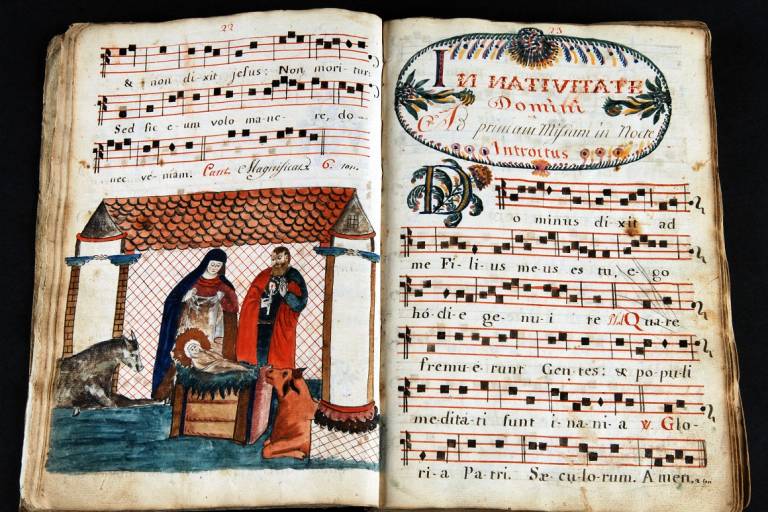 22
& non di-xit Jesus: Non mori-tur:
Sed sic e-um volo ma-ne-re, do-
nec ve-niam. Cant. Magnificat. 6. ton.
23
IN NATIVITATE
Domini
Ad primam Missam in Nocte
Introitus
Do minus di-xit ad
me Fi-li-us me-us es tu, e-go
hó-di-e ge-nu-i te Qua-re
fremu-e-runt Gen-tes: & po-pu-li
me-dita-ti sunt i-na-ni-a V. Glo-
ri-a Pa-tri. Sæ-cu-lo-rum. Amen.